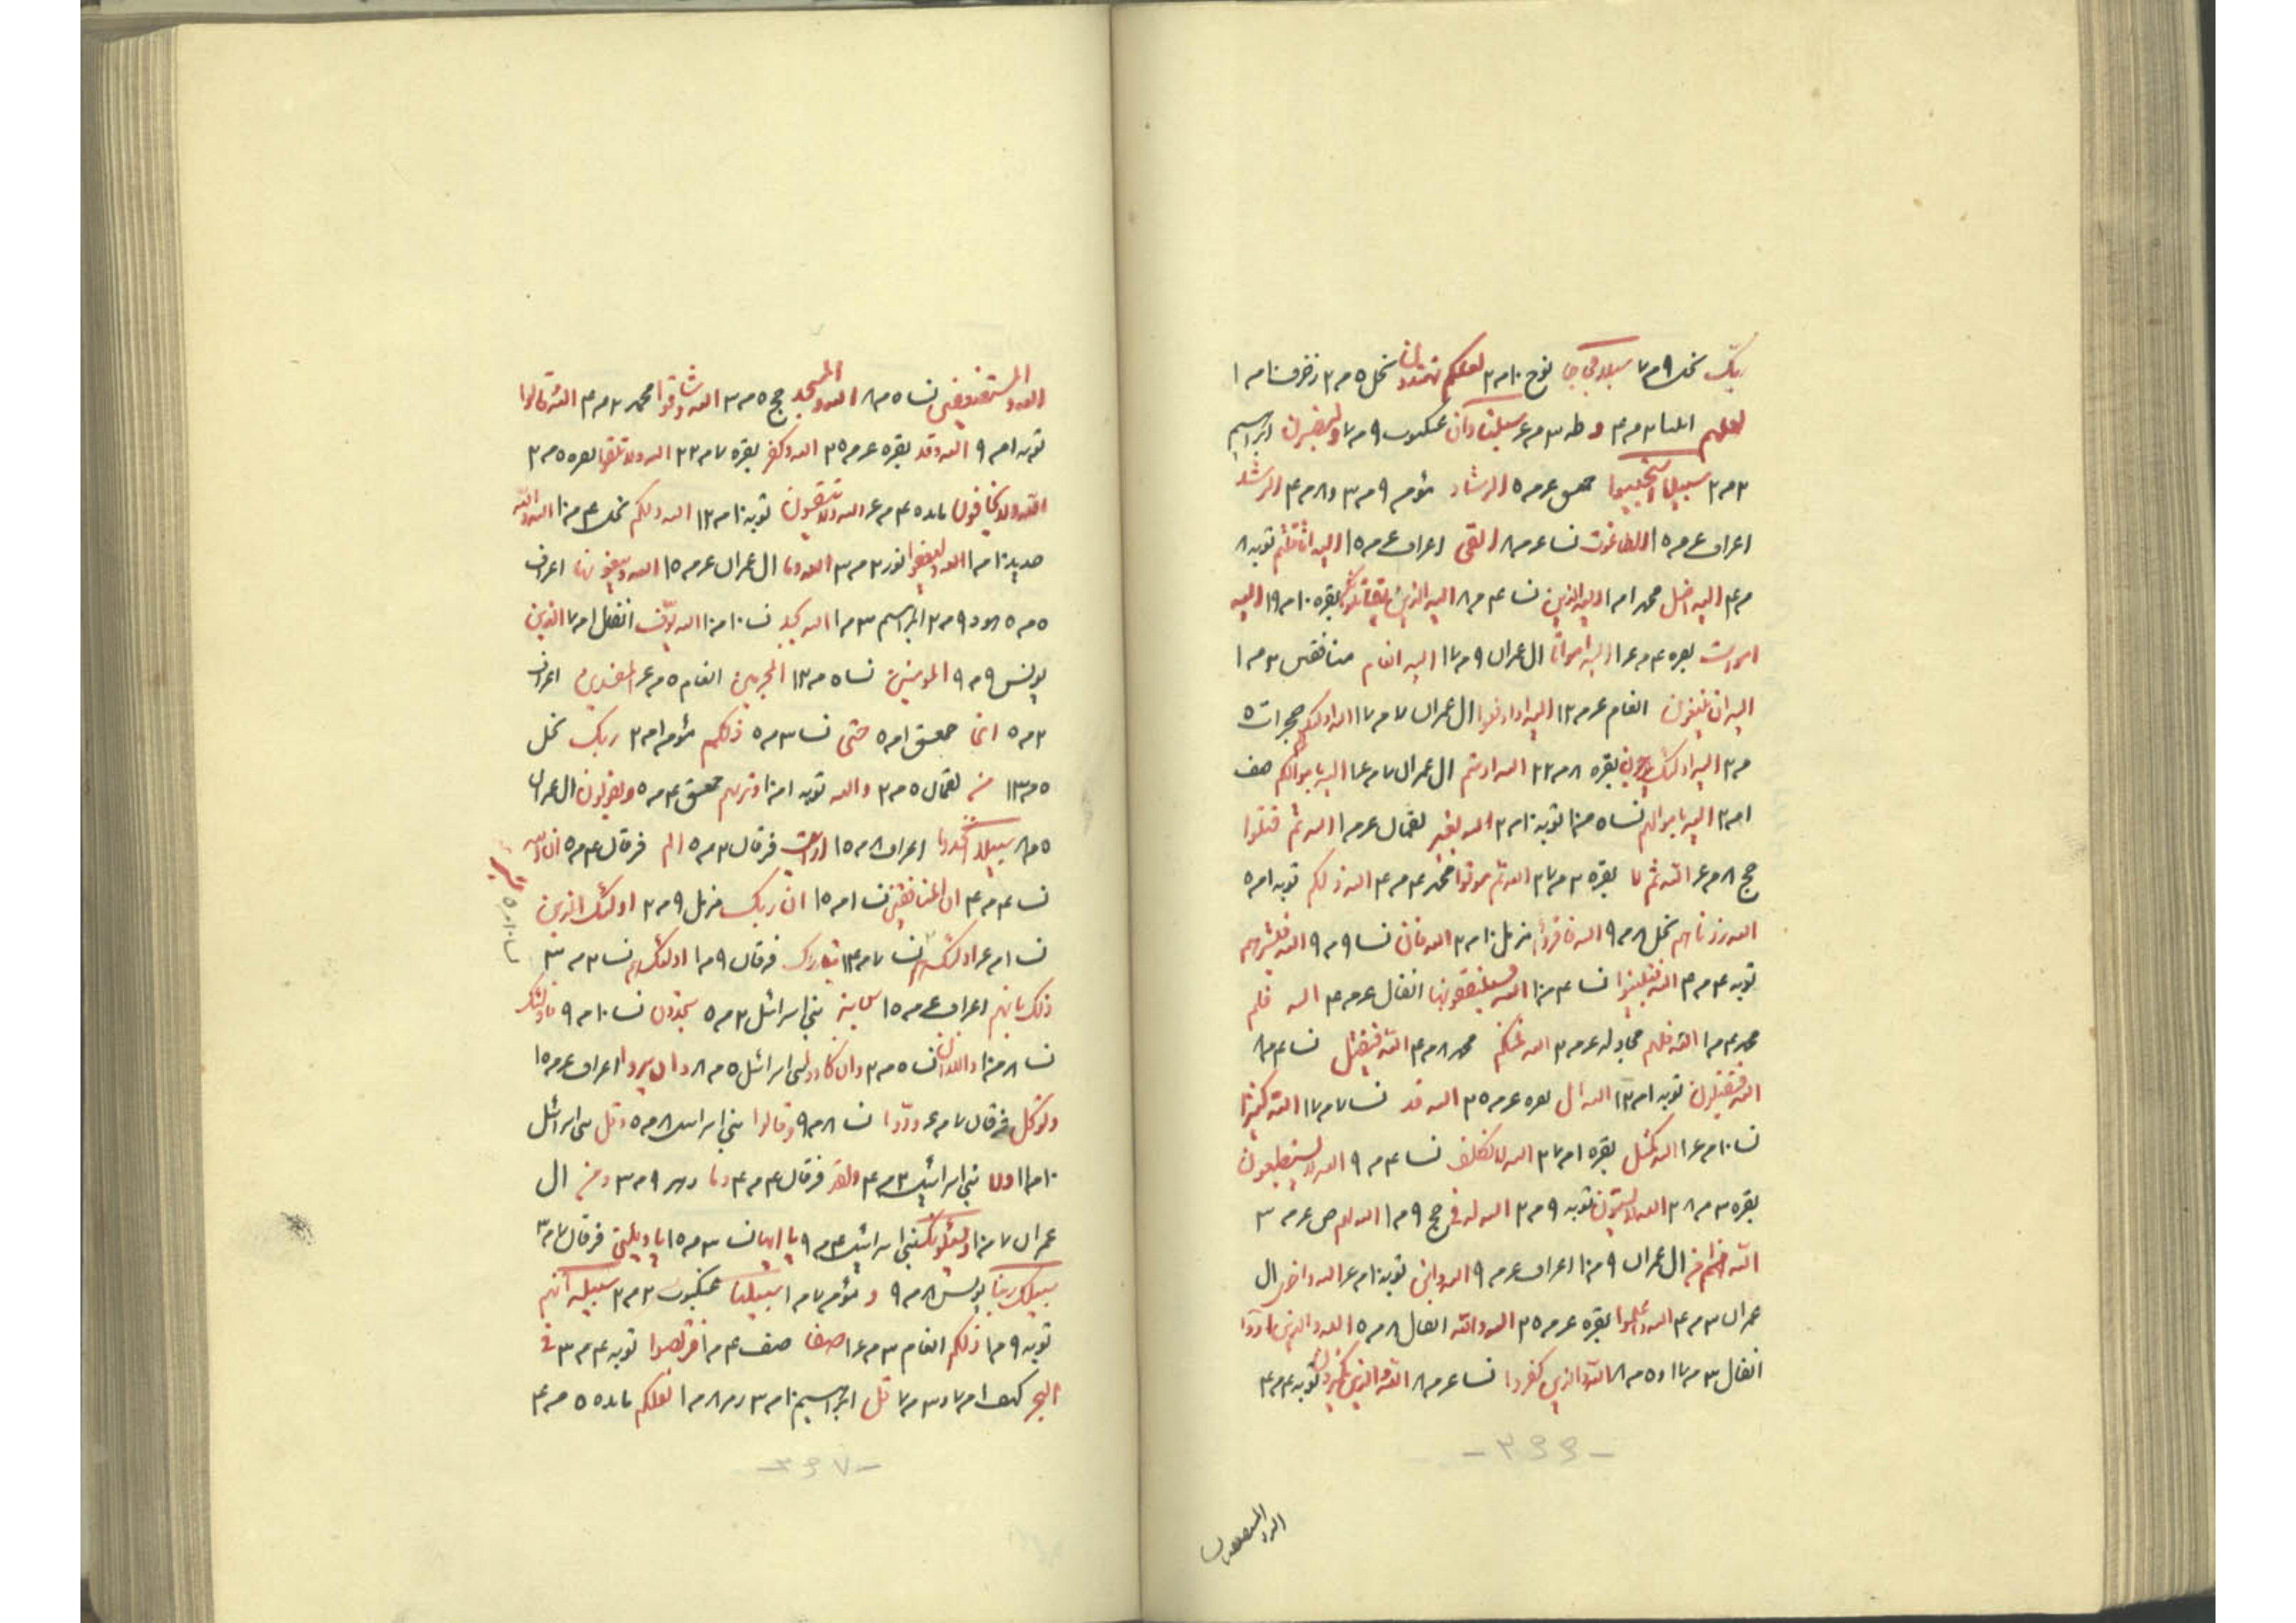 ربك نحل ٩ م ٧ سبلا فجاجا نوح ١٠ م ٢ لعلكم تهتدون نحل ٥ م ٢ زخرف ١٠ م ١
لعلهم انبيا ٣ م ٣ و طه ٣ م ٤ سبلنا وان عنكبوت ٩ م ٧ ابراهيم
٣ م ٢ سبيل استجيبوا حمعسق ٤ م ٥ الرشاد مؤمن ٩ م ٣ و ٨ م ٤ الرشد
اعراف ٤ م ١٥ الطاغوت نسا ٤ م ٨ الغى اعراف ٤ م ١٥ الله اثاقلتم توبه ٨
م ٤ الله اضل محمد ١ م ١ الله الذين نسا ٤ م ٨ الله الذين يقاتلونكم بقره ١٠ م ١٩ الله
اموات بقره ٤ م ١٤ الله امواتا ال عمران ٩ م ١٧ الله انهم منافقين ٣ م ١
الله ان يتبعون انعام ٤ م ١٢ الله او ادفعوا ال عمران ٧ م ١٧ الله اولئك هم حجرات ٥
م ٢ الله اولئك يرجون بقره ٨ م ٢٢ الله او متم ال عمران ٧ م ١٤ الله باموالكم صف
١ م ٢ الله باموالهم نسا ٥ م ١٠ توبه ١٠ م ٣ الله بغير لقمان ٤ م ١ الله ثم قتلوا
حج ٨ م ٤ الله ثم لا بقره ٣ م ٢٧ الله ثم ماتوا محمد ٤ م ٤ الله ذلكم توبه ١ م ٥
الله زدناهم نحل ٨ م ٩ الله فاقرؤا مزمل ١٠ م ٢ الله فان نسا ٩ م ٩ الله فبشرهم
توبه ٤ م ٣ الله فتبينوا نسا ٤ م ١٠ الله فسينفقونها انفال ٤ م ٤ الله فلن
محمد ٤ م ١ الله فلهم مجادله ٤ م ٣ الله فمنكم محمد ٨ م ٤ الله فيقتل نسا ٤ م ٨
الله فيقتلون توبه ١ م ١٢ الله قال بقره ٤ م ٣٥ الله قد نسا ٧ م ١٧ الله كثيرا
نسا ١٠ م ١٤ الله كمثل بقره ١ م ٢٧ الله لا تكلف نسا ٤ م ٩ الله لا يستطيعون
بقره ٣ م ٢٨ الله لا يستوون توبه ٩ م ٢ الله له فى حج ٩ م ١ الله لهم ص ٤ م ٣
الله من ال عمران ٩ م ١٠ اعراف ٤ م ٩ الله وابن توبه ١٠ م ٤ الله واخرى ال
عمران ٣ م ٤ الله واعلموا بقره ٤ م ٣٥ الله والله انفال ٨ م ٥ الله والذين اووا
انفال ٣ م ١٧ و ٥ م ٨ الله والذين كفروا نسا ٤ م ٨ الله والذين يكنزون توبه ٤ م ٤
- ٣٦٦ -
الله والمستضعفين
الله والمستضعفين نسا ٥ م ٨ الله والمسجد حج ٥ م ٣ الله وشاقوا محمد ٢ م ٤ الله وقالوا
توبه ١ م ٩ الله وقد بقره ٤ م ٣٥ الله وكفر بقره ٧ م ٢٢ الله ولا تلقوا بقره ٥ م ٢
الله ولا يخافون مائده ٤ م ٤ الله ولا ينفقون توبه ١٠ م ١٢ الله ولكم نحل ٤ م ١٠ الله ولله
حديد ١٠ م ١ الله وليعفوا نور ٢ م ٣ الله وما ال عمران ٤ م ١٥ الله ويبغونها اعراف
٥ م ٥ هود ٩ م ٢ ابراهيم ٣ م ١ الله يجد نسا ١٠ م ١٠ الله يوف انفال ١ م ٧ الذين
يونس ٩ م ٩ المؤمنين نسا ٥ م ١٣ المجرمين انعام ٥ م ٤ المفسدين اعراف
٢ م ٥ انما حمعسق ١ م ٥ حتى نسا ٣ م ٥ ذلكم مؤمن ١ م ٢ ربك نحل
٥ م ١٣ من لقمان ٥ م ٢ والله توبه ١ م ١٠ وتريهم حمعسق ٤ م ٥ ويقولون ال عمران
٥ م ٨ سبيلا اتخذوه اعراف ٨ م ١٥ ارايت فرقان ٣ م ٥ الم فرقان ٤ م ٥ ان الله
نسا ٤ م ٤ ان المنافقين نسا ١ م ١٥ ان ربك مزمل ٩ م ٢ اولئك الذين
نسا ١ م ٤ اولئك هم نسا ٧ م ١٣ تبارك فرقان ٩ م ١ اولئك لهم نسا ٣ م ٣
ذلك بانهم اعراف ٤ م ١٥ سنة بنى اسرائل ٣ م ٥ ستجدون نسا ١٠ م ٩ فاولئك
نسا ٨ م ١٠ واللذان نسا ٥ م ٣ وان كادوا بنى اسرائل ٥ م ٨ وان يروا اعراف ٤ م ١٥
وتوكل فرقان ٧ م ٤ ودوا نسا ٨ م ٩ وقالوا بنى اسرائل ٨ م ٥ وقل بنى اسرائل
١٠ م ١١ ولا بنى اسرائيل ٣ م ٤ ولقد فرقان ٤ م ٤ وما دهر ٩ م ٣ ومن ال
عمران ٧ م ١٠ ويسئلونك بنى اسرائيل ٤ م ٩ يا ايها نسا ٣ م ١٥ يا ويلتى فرقان ٧ م ٣
سبيلك ربنا يونس ٨ م ٩ و مؤمن ٧ م ١ سبيلنا عنكبوت ٢ م ٢ سبيله انهم
توبه ٩ م ١ ذلكم انعام ٣ م ١٤ صفا صف ٤ م ١ فتربصوا توبه ٤ م ٣ فى
البحر كهف ١ م ٧ و ٣ م ٧ قل ابراهيم ١٠ م ٣ زمر ٨ م ١ لعلكم مائده ٥ م ٤
- ٣٦٧ -